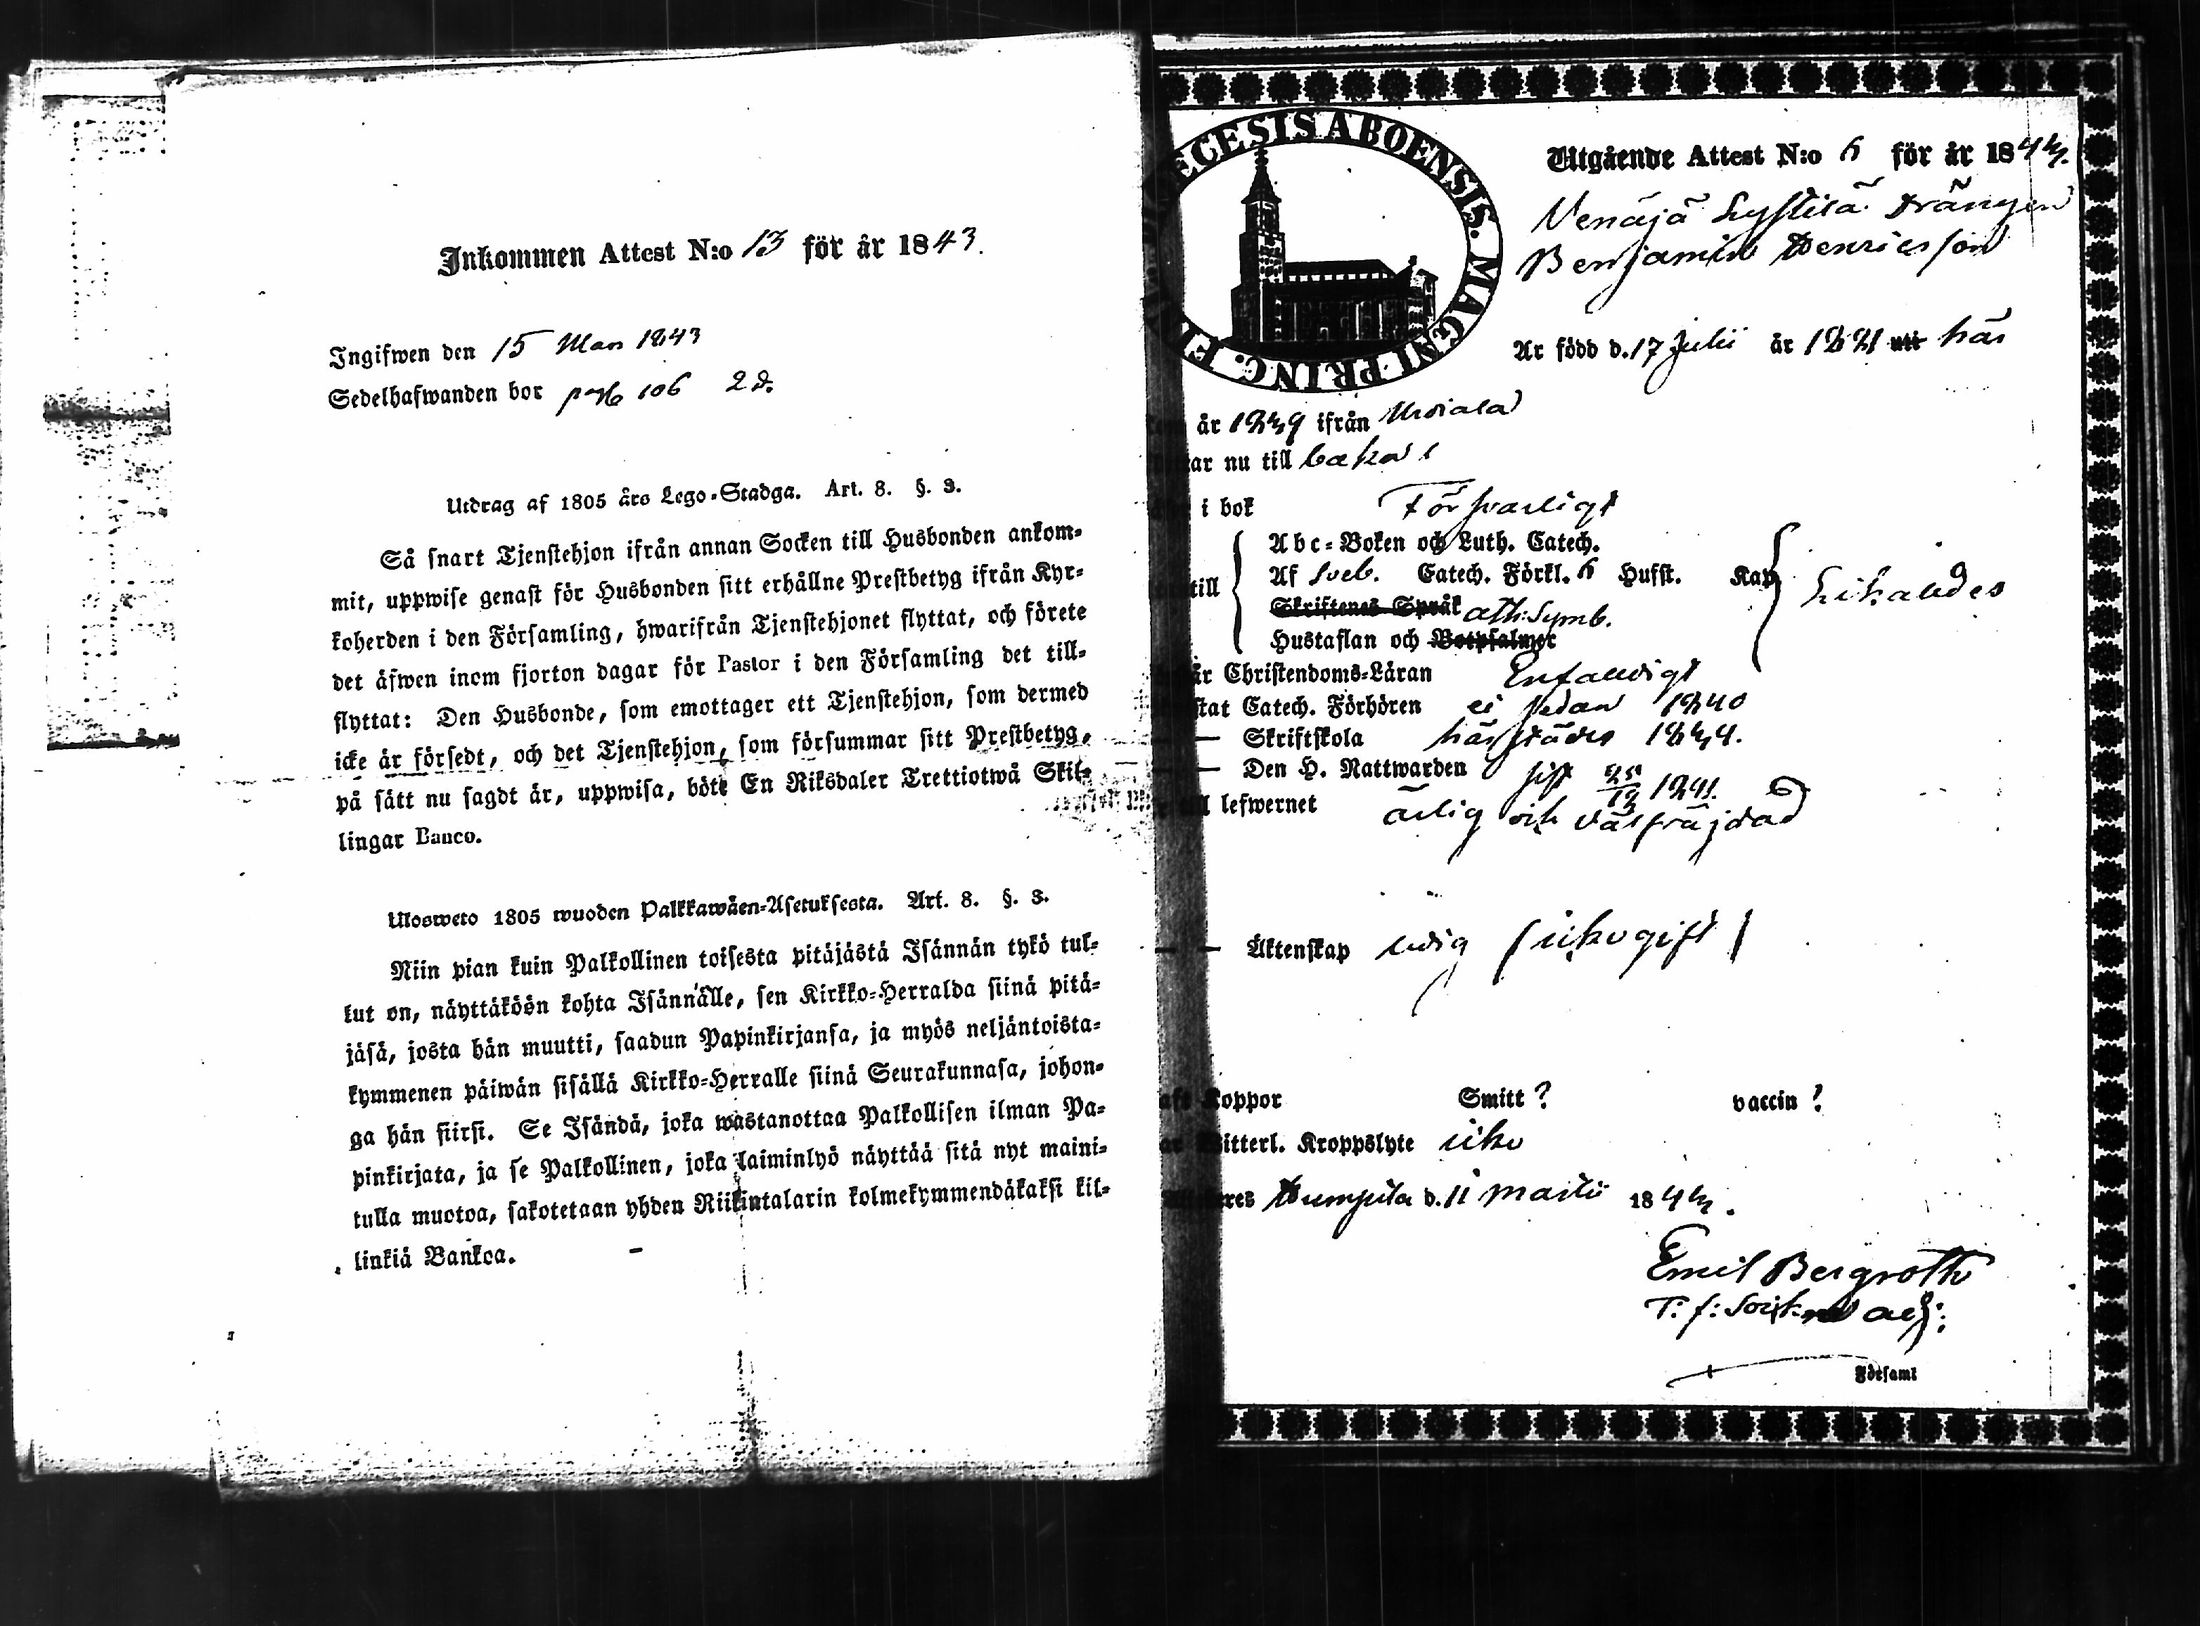 Inkommen Attest N:o 13 för år 1843.
Ingifwen den 15 Mars 1843
Sedelhafwanden bor pag 106 2 d.
Utdrag af 1805 års Lego-Stadga. Art. 8. §. 3.
Så snart Tjenstehjon ifrån annan Socken till Husbonden ankom-
mit, uppwise genast för Husbonden sitt erhållne Prestbetyg ifrån Kyr-
koherden i den Församling, hwarifrån Tjenstehjonet flyttat, och förete
det äfwen inom fjorton dagar för Pastor i den Församling det till-
flyttat: Den Husbonde, som emottager ett Tjenstehjon, som dermed
icke är försedt, och det Tjenstehjon, som försummar sitt Prestbetyg,
på sätt nu sagdt är, uppwisa, böte En Riksdaler Trettiotwå Skil-
lingar Banco.
Ulosweto 1805 wuoden Palkkawäen-Asetuksesta. Art. 8. §. 3.
Niin pian kuin Palkollinen toisesta pitäjästä Isännän tykö tul-
kut on, näyttäköön kohta Isännälle, sen Kirkko-Herralda siinä pitä-
jäsä, josta hän muutti, saadun Papinkirjansa, ja myös neljäntoista-
kymmenen päiwän sisällä Kirkko-Herralle siinä Seurakunnasa, johon-
ga hän siirsi. Se Isändä, joka wastanottaa Palkollisen ilman Pa-
pinkirjata, ja se Palkollinen, joka laiminlyö näyttää sitä nyt maini-
tulla muotoa, sakotetaan yhden Riikintalarin kolmekymmendäkaksi kil-
linkiä Bankoa.
ECESIS ABOENSIS. MAGNI PRINC. F
Utgående Attest N:o 6 för år 1843.
Benjamin Henricsson
Är född d. 17 Julii år 1821 här
år 1839 ifrån Urdiala
ar nu till
i bok Försvarligt
Abc-Boken och Luth. Catech.
till Af Sveb. Catech. Förkl. 6 Hufst. Kap
Skriftenes Språk Ath: Symb.
Hustaflan och Botpsalmer
Likaledes
är Christendoms-Läran Enfaldigt
stat Catech. Förhören ei sedan 1840
Skriftskola härstädes 1834.
Den H. Nattwarden sist 1841
till lefwernet ärlig och välfräjdad
Äktenskap ledig (icke gift)
aft Koppor Smitt? vaccin?
ar Witterl. Kroppslyte icke
res Humpila d. 11 Martii 1843.
Emil Bergroth
Församl